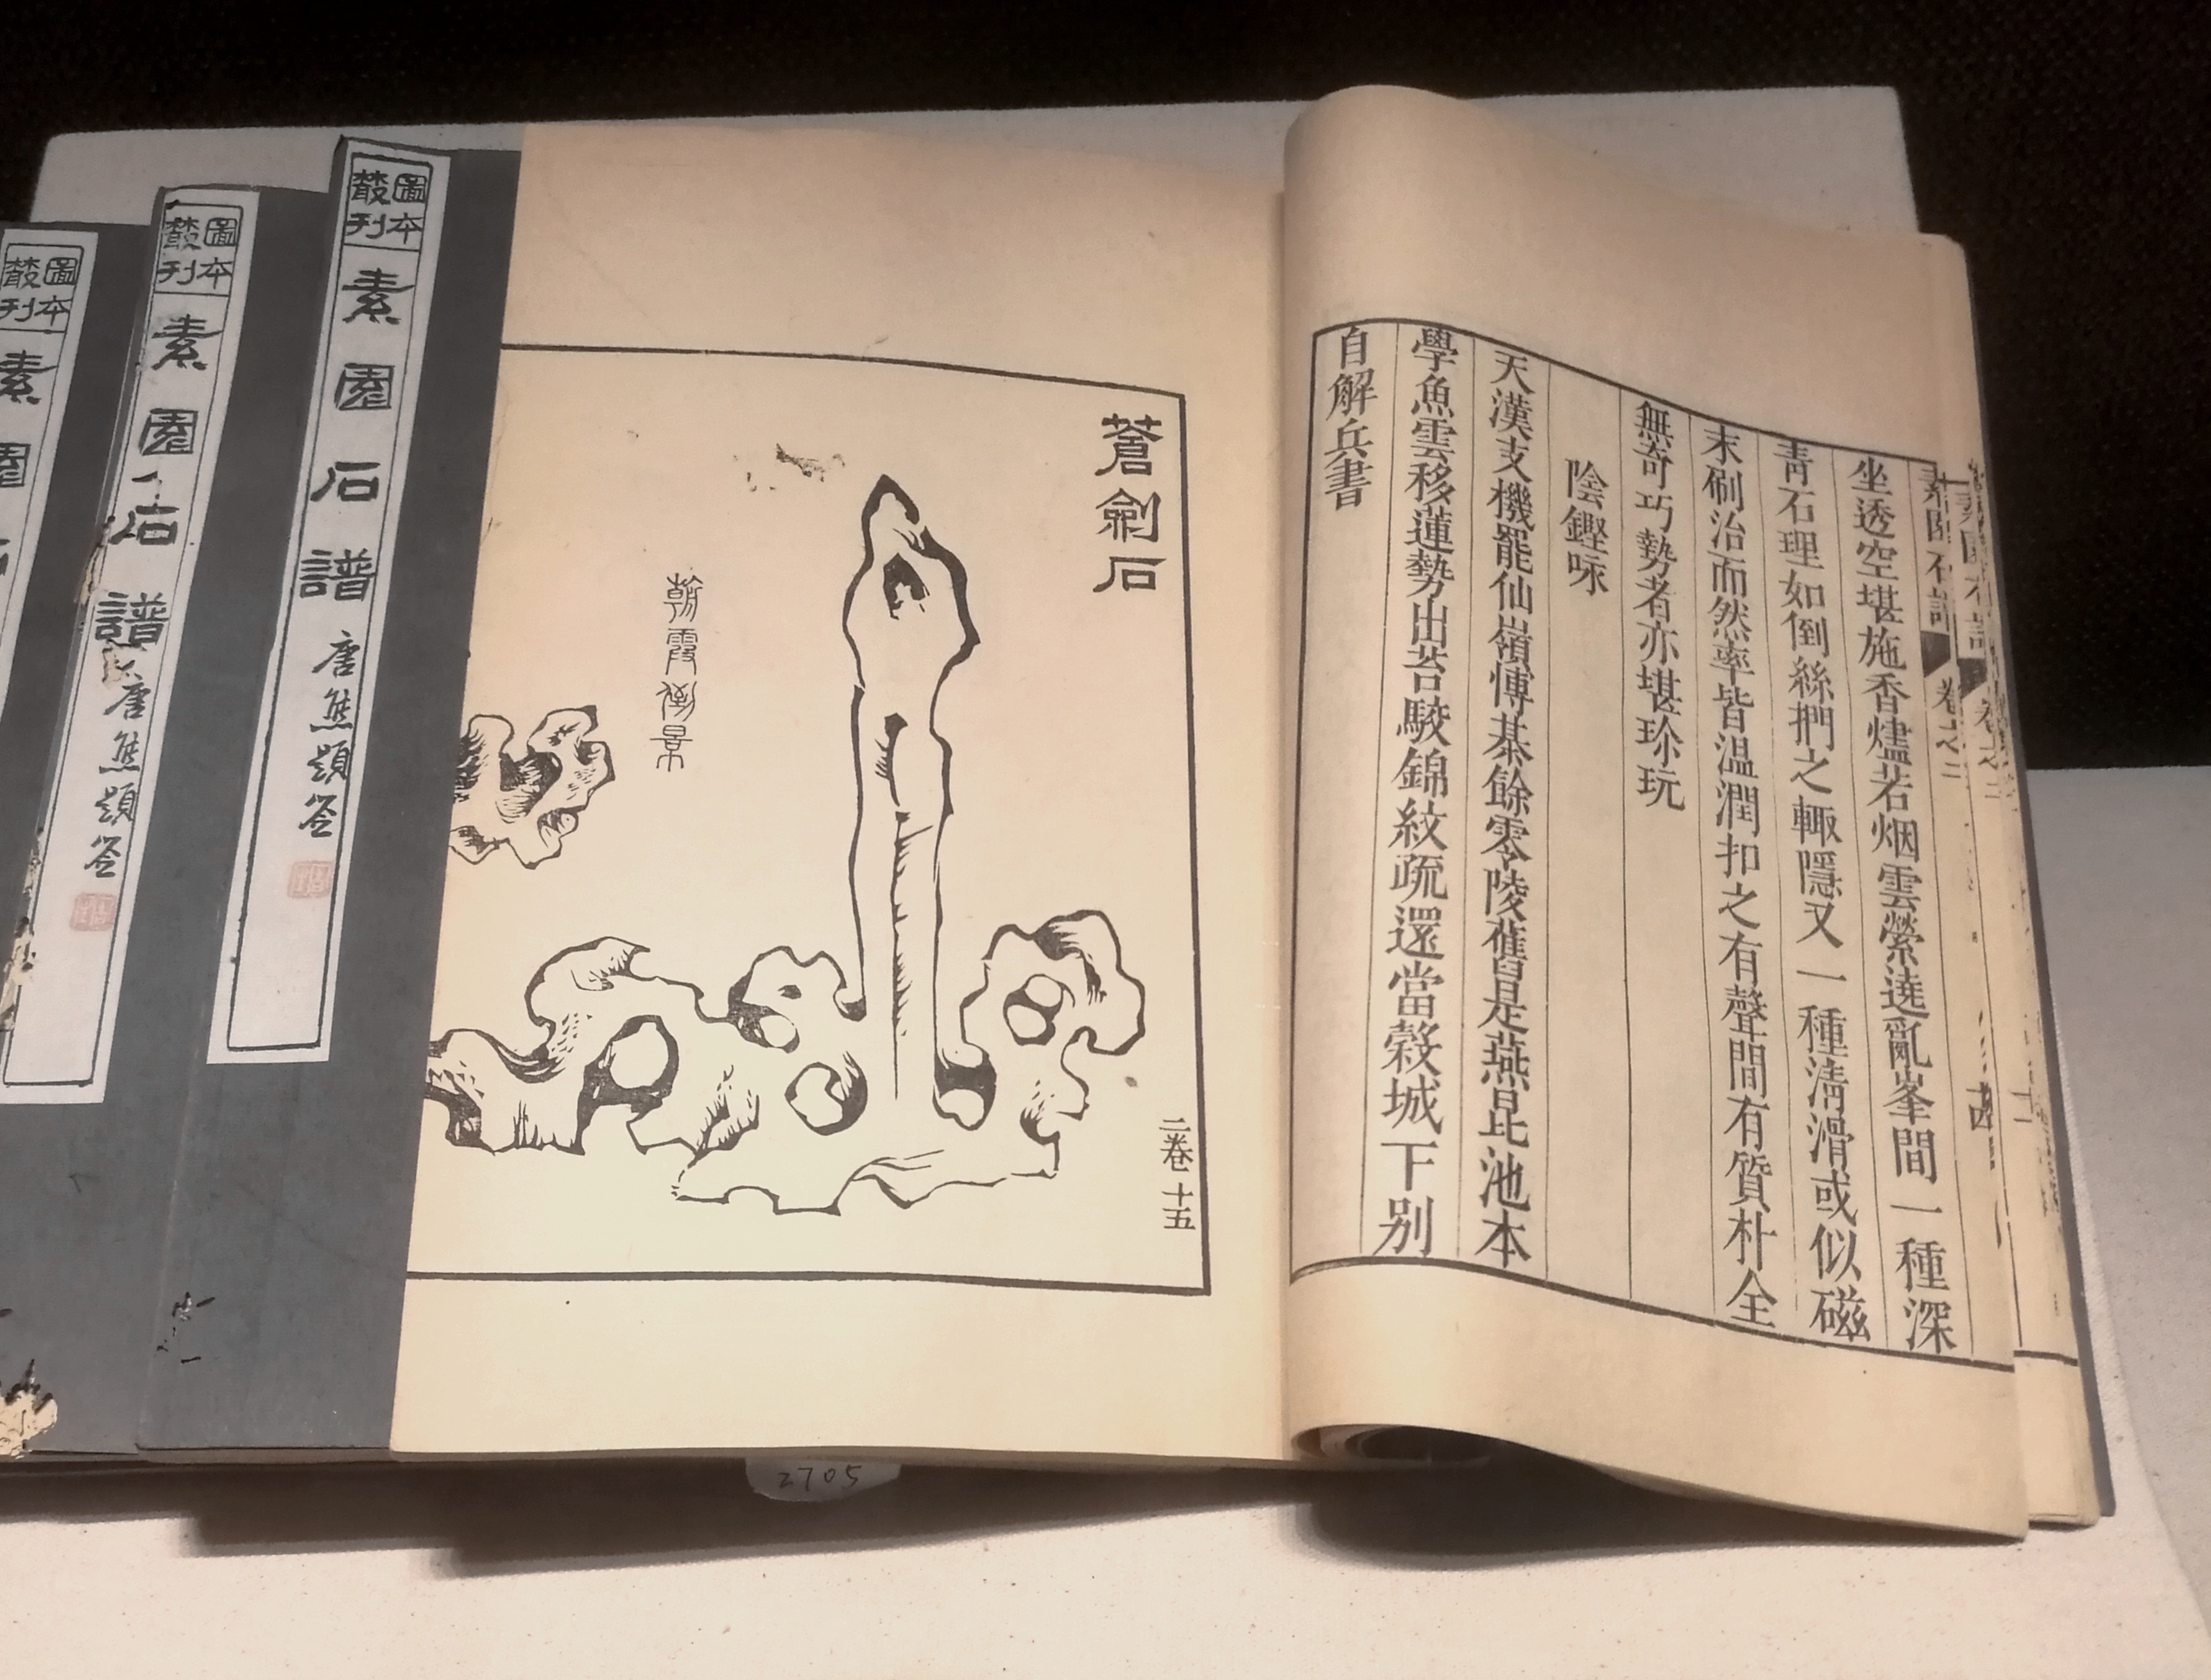 素園石譜
卷之二
坐透空堪施香燼若烟雲縈遶亂峯間一種深
青石理如倒絲捫之輙隱又一種淸滑或似磁
末刷治而然率皆温潤扣之有聲間有質朴全
無奇巧勢者亦堪珍玩
陰鏗咏
天漢支機罷仙嶺慱棊餘零陵舊是燕昆池本
學魚雲移蓮勢出苔駮錦紋疏還當榖城下别
自解兵書
蒼劍石
二卷 十五
朝霞倒景
圖本叢刊
素園石譜
唐熊題簽
圖本叢刊
素園石譜
唐熊題簽
圖本叢刊
素園石
2705